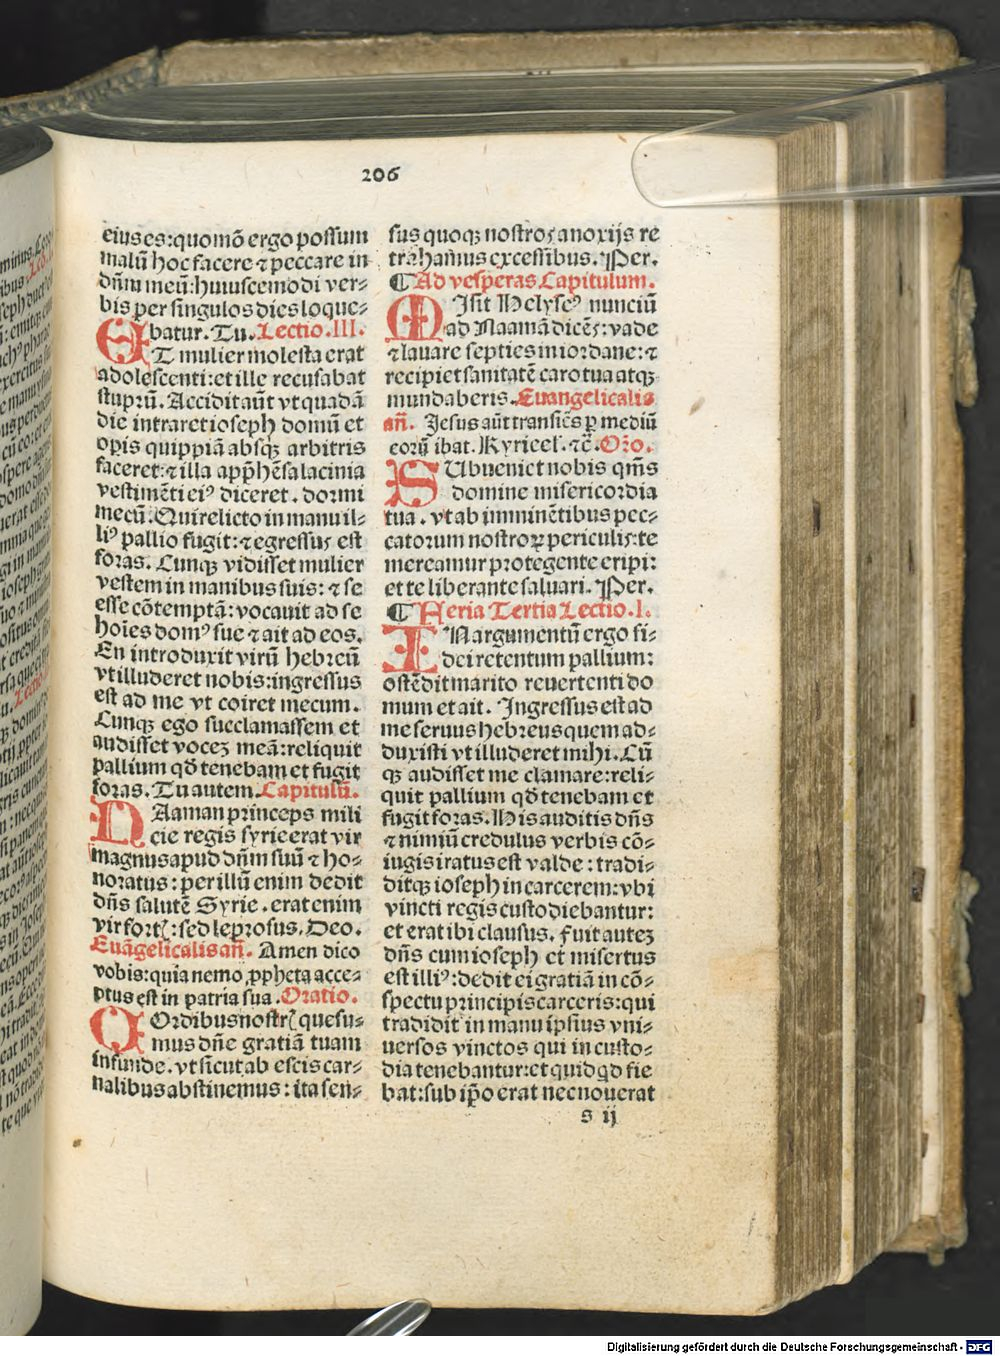 206
eius es:quomō ergo possum
malū hoc facere ⁊ peccare in
dn̄m meū:huiuscemodi ver⸗
bis per singulos dies loque⸗
batur. Tu. Lectio.III.
ET mulier molesta erat
adolescenti:et ille recusabat
stuprū. Accidit aūt vt quadā
die intraret ioseph domū et
opis quippiā absqꝫ arbitris
faceret:⁊ illa app̄hēsa lacinia
vestimēti eiꝰ diceret. dormi
mecū. Qui relicto in manu il⸗
liꝰ pallio fugit:⁊ egressus est
foras. Cunqꝫ vidisset mulier
vestem in manibus suis: ⁊ se
esse cōtemptā: vocauit ad se
hoīes domꝰ sue ⁊ ait ad eos.
En introduxit virū hebreū
vt illuderet nobis:ingressus
est ad me vt coiret mecum.
Cunqꝫ ego succlamassem et
audisset vocez meā:reliquit
pallium qd̄ tenebam et fugit
foras. Tu autem. Capitulū.
NAaman princeps mili
cie regis syrie erat vir
magnus apud dn̄m suū ⁊ ho⸗
noratus: per illū enim dedit
dn̄s salutē Syrie. erat enim
vir fortꝭ: sed leprosus. Deo.
Euāgelicalis an̄. Amen dico
vobis:quia nemo ꝓpheta acce⸗
ptus est in patria sua. Oratio.
COrdibus nostrꝭ quesu⸗
mus dn̄e gratiā tuam
infunde. vt sicut ab escis car⸗
nalibus abstinemus: ita sen⸗
sus quoqꝫ nostros a noxijs re
trahamus excessibus. Per.
¶ Ad vesperas Capitulum.
MIsit Helyseꝰ nunciū
ad Naamā dicēs: vade
⁊ lauare septies in iordane: ⁊
recipiet sanitatē caro tua atqꝫ
mundaberis. Euangelicalis
an̄. Jesus aūt transiēs ꝑ mediū
eorū ibat. Kyrieel. ⁊c̄. Or̄o.
SUbueniet nobis qm̄s
domine misericordia
tua. vt ab imminētibus pec⸗
catorum nostroꝝ periculis:te
mereamur protegente eripi:
et te liberante saluari. Per.
¶ Feria Tertia Lectio.I.
IN argumentū ergo fi⸗
dei retentum pallium:
ostēdit marito reuertenti do
mum et ait. Ingressus est ad
me seruus hebreus quem ad⸗
duxisti vt illuderet mihi. Cū
qꝫ audisset me clamare:reli⸗
quit pallium qd̄ tenebam et
fugit foras. His auditis dn̄s
⁊ nimiū credulus verbis cō⸗
iugis iratus est valde: tradi⸗
ditqꝫ ioseph in carcerem:vbi
vincti regis custodiebantur:
et erat ibi clausus. Fuit autez
dn̄s cum ioseph et misertus
est illiꝰ: dedit ei gratiā in cō⸗
spectu principis carceris:qui
tradidit in manu ipsius vni⸗
uersos vinctos qui in custo⸗
dia tenebantur:et quid qd fie
bat:sub ip̄o erat nec nouerat
s ij
Digitalisierung gefördert durch die Deutsche Forschungsgemeinschaft - DFG